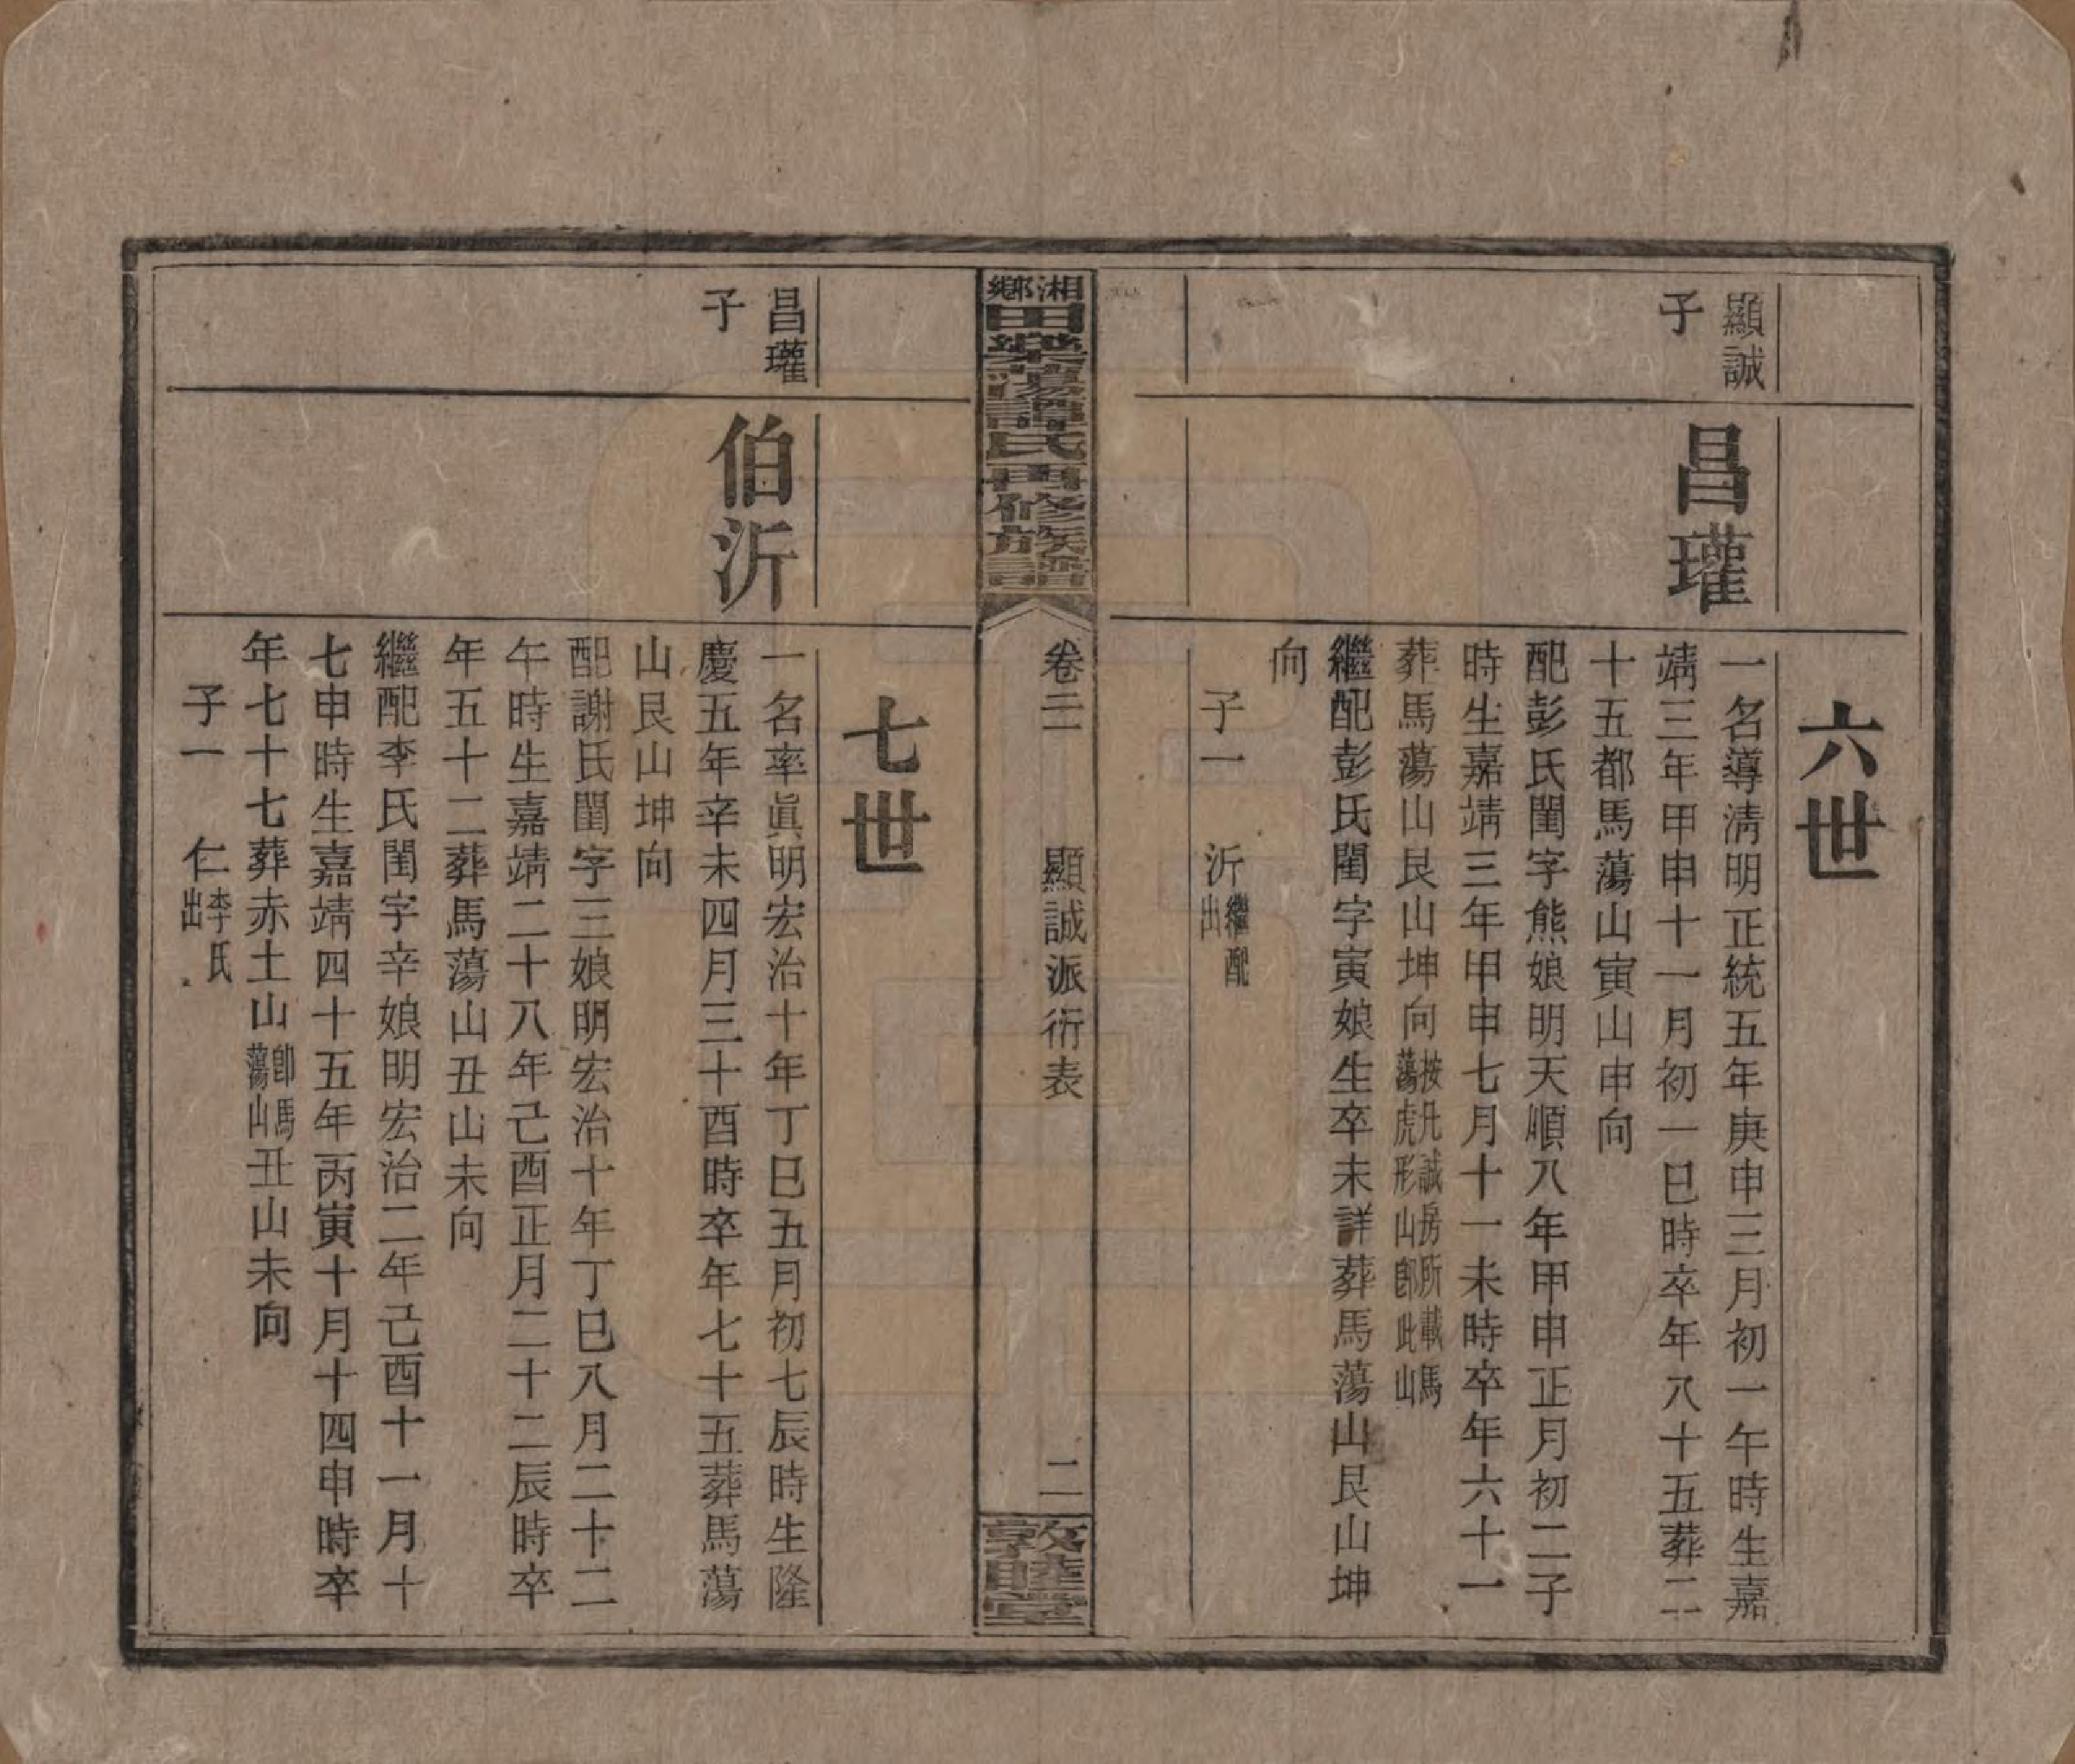 六世
顯誠
子
昌瓘
一名導清明正統五年庚申三月初一午時生嘉
靖三年甲申十一月初一巳時卒年八十五葬二
十五都馬蕩山寅山申向
配彭氏閨字熊娘明天順八年甲申正月初二子
時生嘉靖三年甲申七月十一未時卒年六十一
葬馬蕩山艮山坤向按凡誠房所載馬
蕩虎形山卽此山
繼配彭氏閨字寅娘生卒未詳葬馬蕩山艮山坤
向
子一 沂繼配
出
湘鄉田業蕩譚氏再修族譜
卷三 顯誠派衍表 二
敦睦堂
七世
昌瓘
子
伯沂
一名率眞明宏治十年丁巳五月初七辰時生隆
慶五年辛未四月三十酉時卒年七十五葬馬蕩
山艮山坤向
配謝氏閨字三娘明宏治十年丁巳八月二十二
午時生嘉靖二十八年己酉正月二十二辰時卒
年五十二葬馬蕩山丑山未向
繼配李氏閨字辛娘明宏治二年己酉十一月十
七申時生嘉靖四十五年丙寅十月十四申時卒
年七十七葬赤土山卽馬
蕩山丑山未向
子一 仁李氏
出